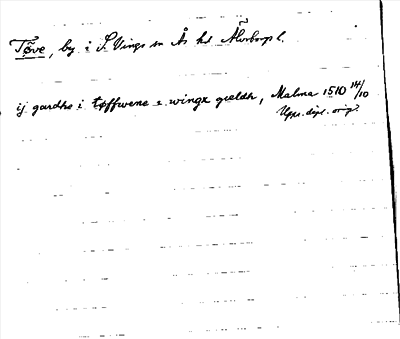 Tøve, by i S. Vings sn Ås hd Älvsborgs l.
ij gardha i tøffwene i winga gieldh, Malma 1510 14/10
Upps. dipl. orig.